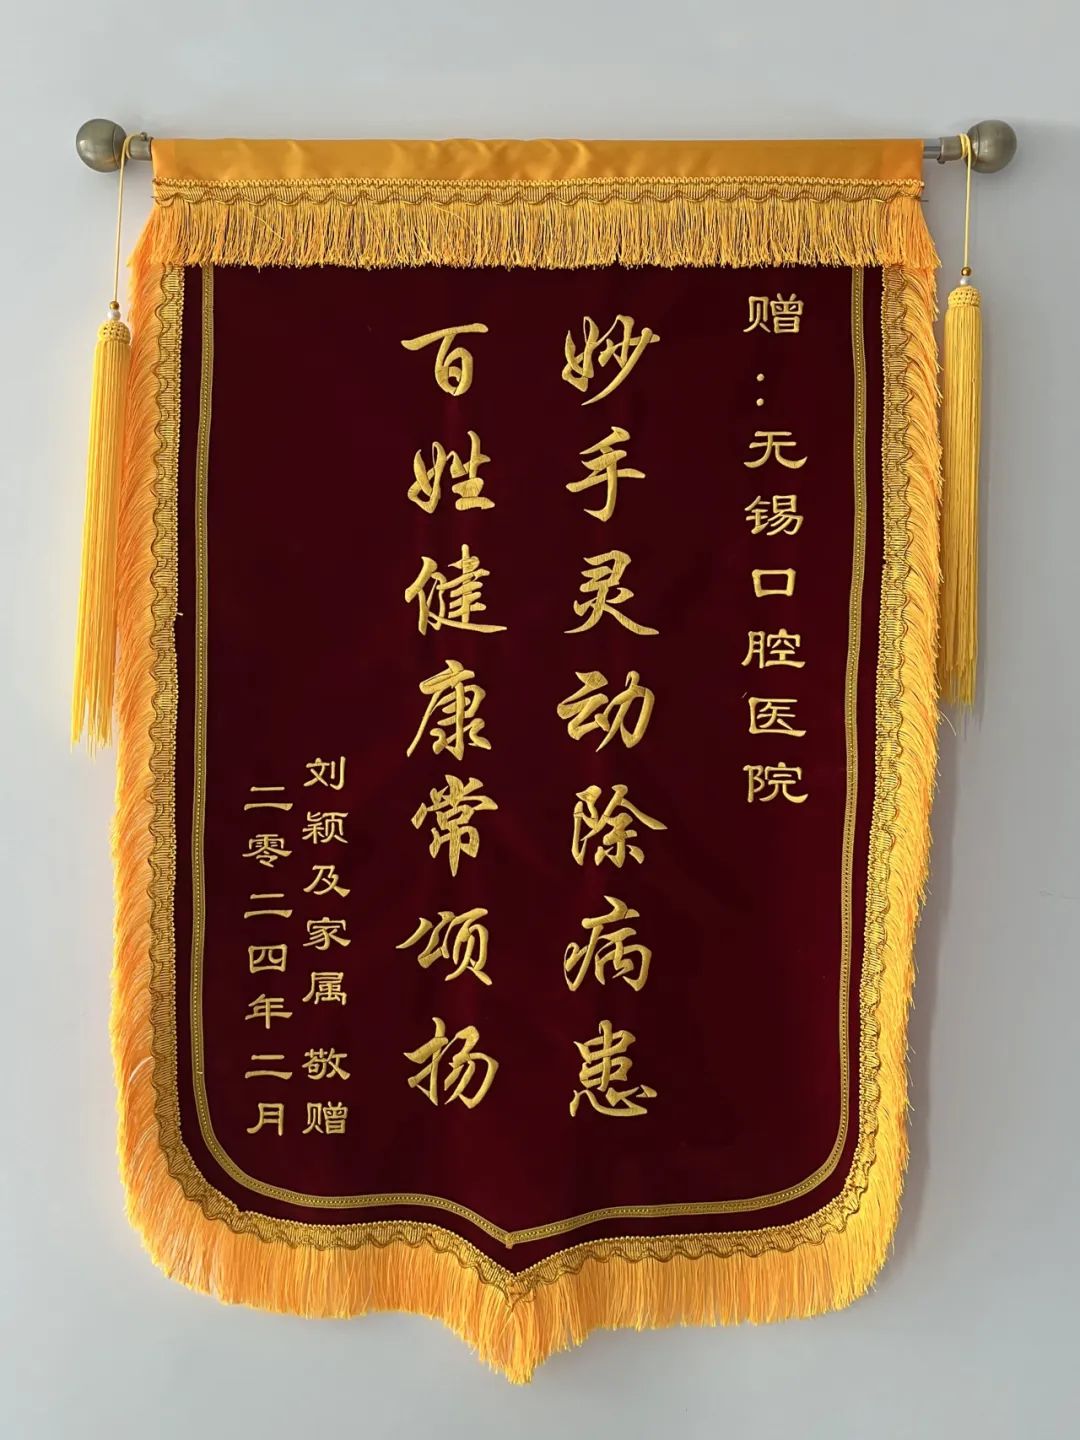 赠：无锡口腔医院
妙手灵动除病患
百姓健康常颂扬
刘颖及家属 敬赠
二零二四年二月